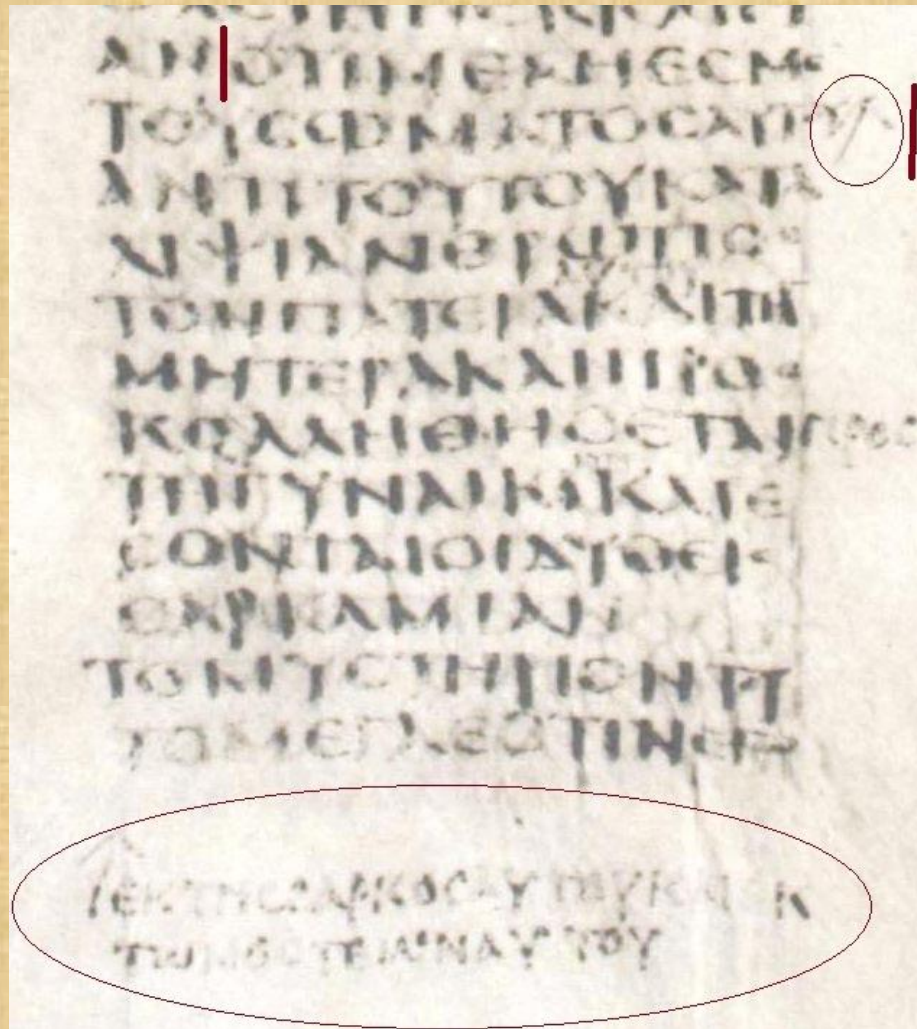 ΑΝΟΤΙΜΕΛΗΕϹΜΕ
ΤΟΥϹΩΜΑΤΟϹΑΥΤΟΥ
ΑΝΤΙΤΟΥΤΟΥΚΑΤΑ
ΛΙΨΙΑΝΘΡΩΠΟϹ
ΤΟΝΠΑΤΕΡΑΚΑΙΤΗΝ
ΜΗΤΕΡΑΚΑΙΠΡΟϹ
ΚΟΛΛΗΘΗϹΕΤΑΙ
ΤΗΓΥΝΑΙΚΙΚΑΙΕ
ϹΟΝΤΑΙΟΙΔΥΟΕΙϹ
ϹΑΡΚΑΜΙΑΝ
ΤΟΜΥϹΤΗΡΙΟΝΤΟΥ
ΤΟΜΕΓΑΕϹΤΙΝΕΓΩ
ΕΚΤΗϹϹΑΡΚΟϹΑΥΤΟΥΚΑΙΕΚ
ΤΩΝΟϹΤΕΩΝΑΥΤΟΥ